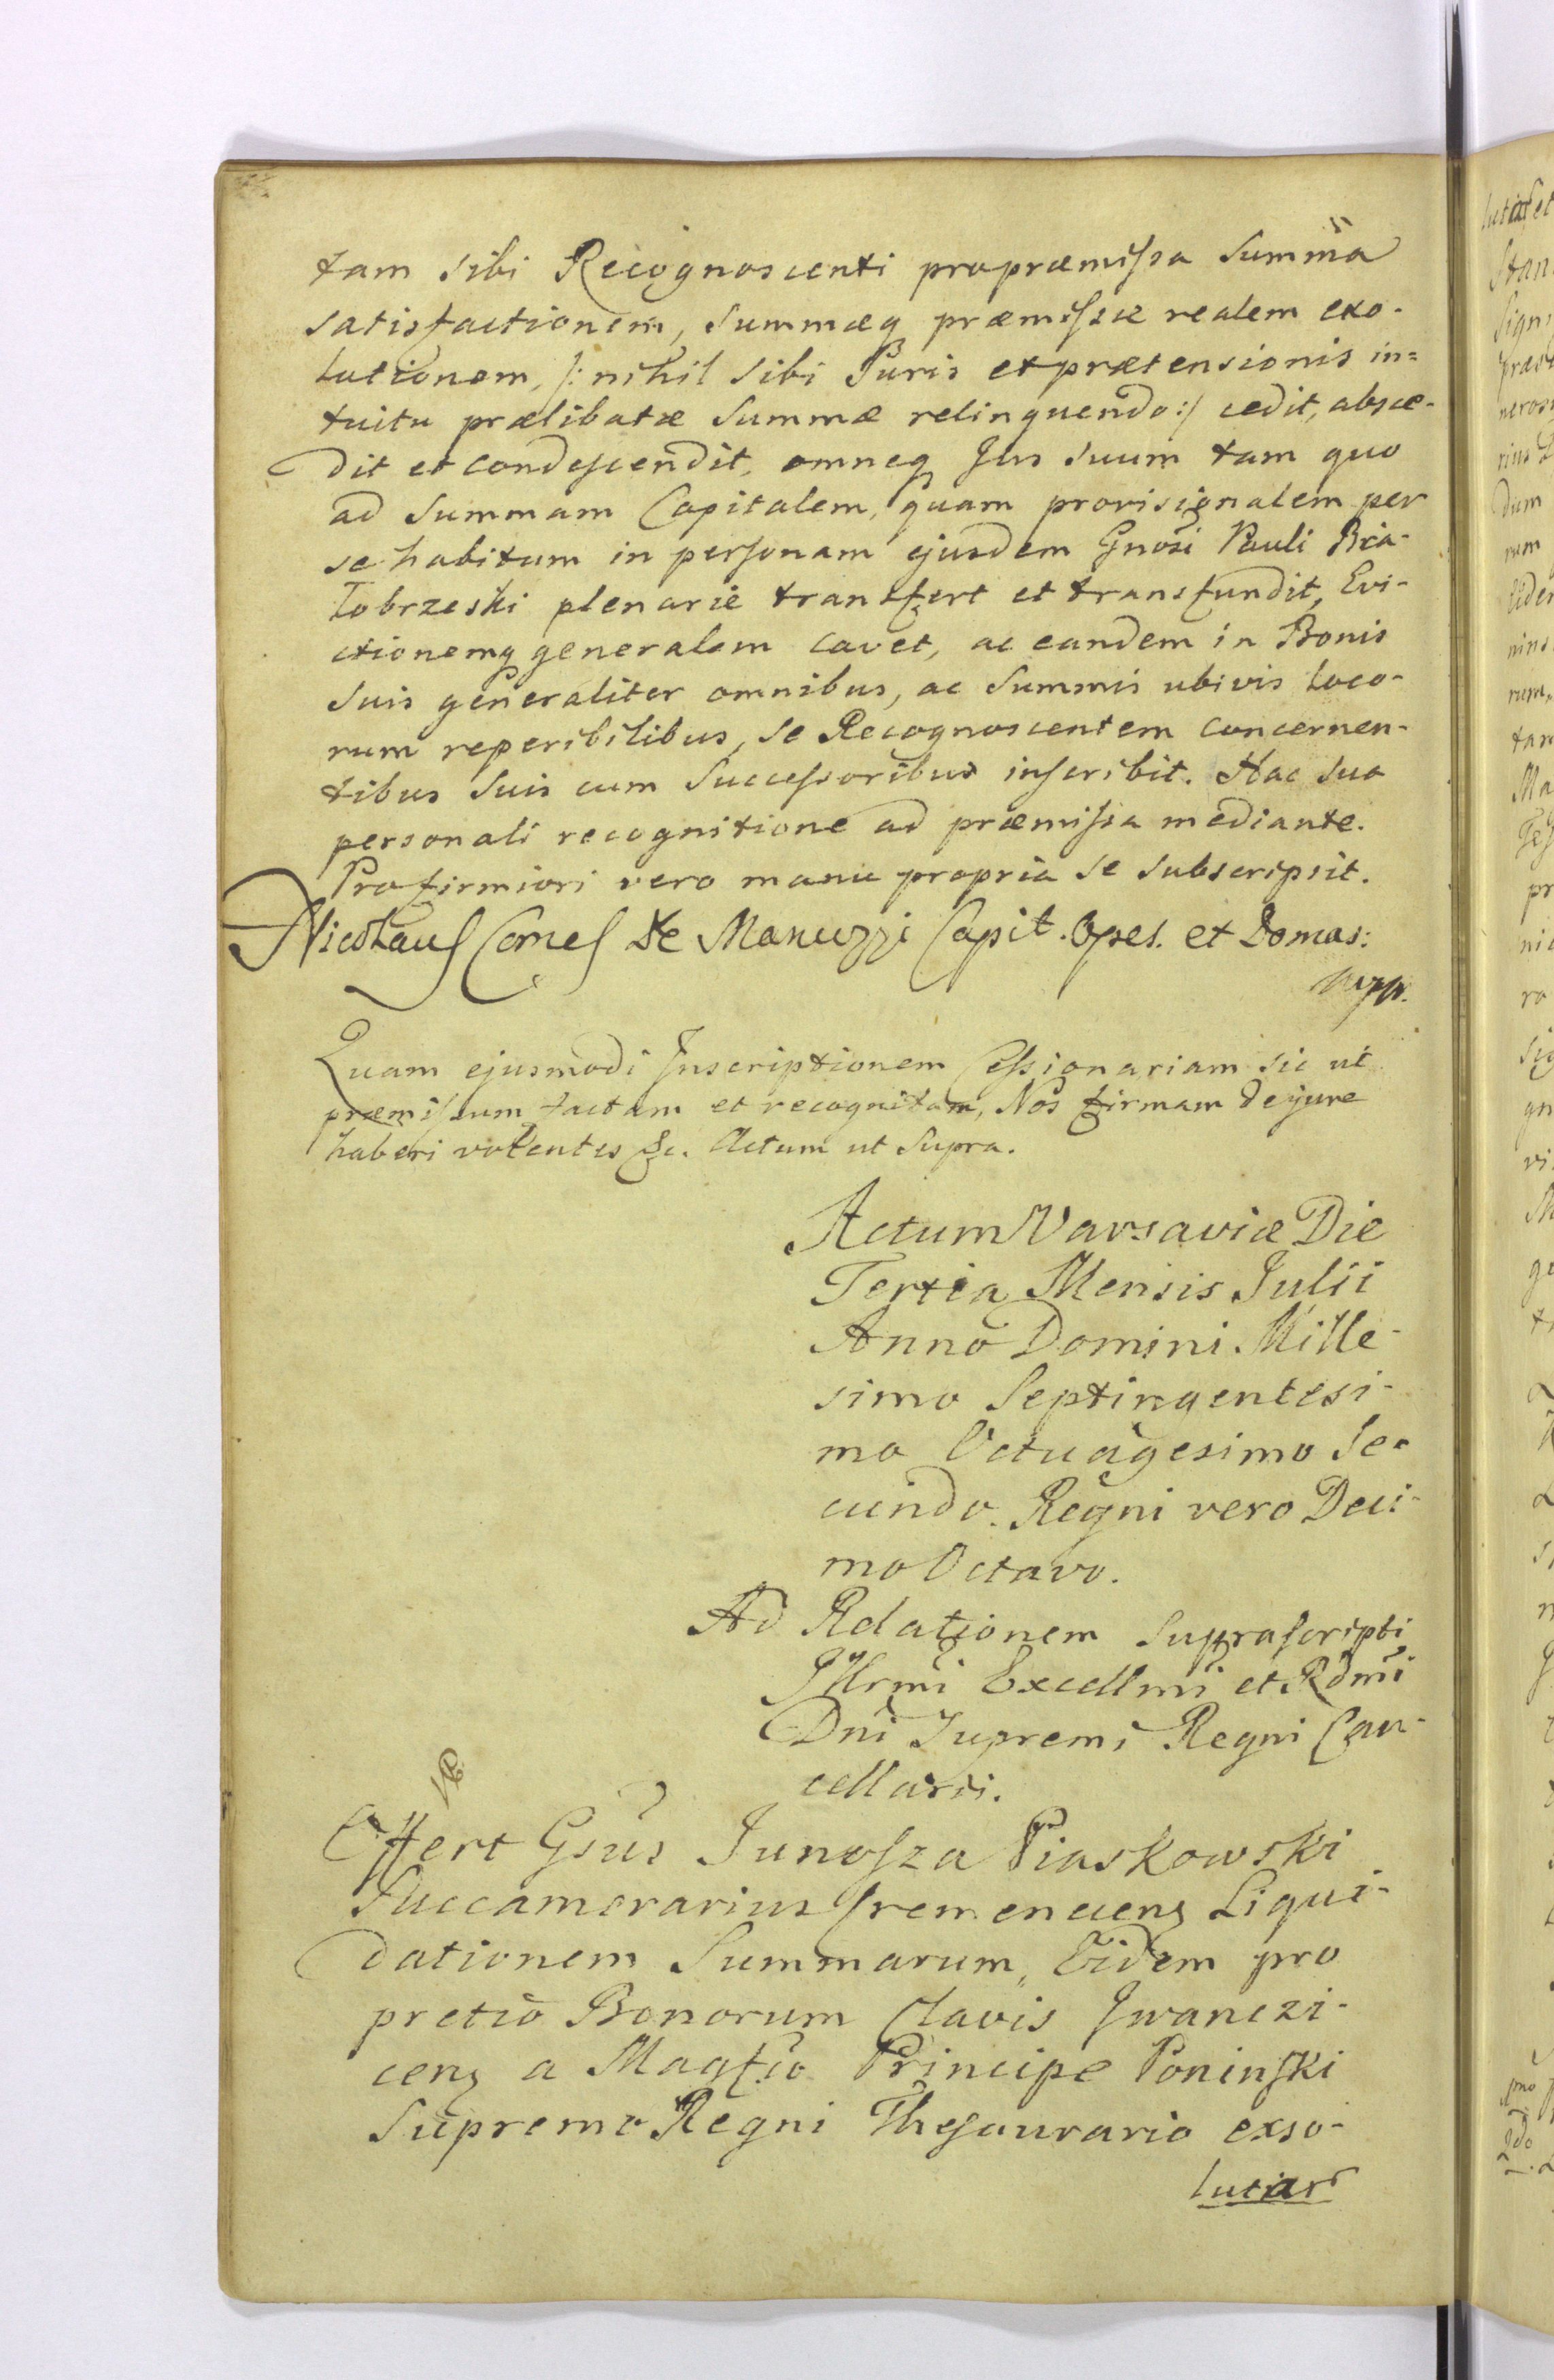 tam sibi Recognoscenti propræmissa Summa
satisfactionem, Summæq præmissæ realem exo-
lutionem, /: nihil sibi Juris et prætensionis in=
tuitu prælibatæ Summæ relinquendo :/ cedit, absce-
dit et condescendit, omneq Jus suum tam quo
ad Summam Capitalem, quam provisionalem per
se habitum in personam ejusdem Gnosi Pauli Bia-
łobrzeski plenarie transfert et transfundit, Evi-
ctionemq generalem cavet, ac eandem in Bonis
suis generaliter omnibus, ac Summis ubivis loco-
rum reperibilibus, se Recognoscentem concernen-
tibus suis cum Successoribus inscribit. Hac sua
personali recognitione ad præmissa mediante.
Pro firmiori vero manu propria se subscripsit.
Nicolaus Comes de Manuzzi Capit. Opes. et Domas:
mpp.
Quam ejusmodi Inscriptionem Cessionariam sic ut
præmissum factam et recognitam, Nos firmam de jure
haberi volentes &c. Actum ut Supra.
Actum Varsaviæ Die
Tertia Mensis Julii
Anno Domini Mille-
simo Septingentesi-
mo Octuagesimo Se-
cundo. Regni vero Deci-
mo Octavo.
Ad Relationem Suprascripti
Illrmi Excellmi et Rdmi
Dni Supremi Regni Can-
cellarii.
Offert Gsus Junosza Piaskowski
Succamerarius Cremenecens Liqui-
dationem Summarum, Eidem pro
pretio Bonorum Clavis Jwanczi-
cens a Magfco Principe Poninski
Supremo Regni Thesaurario exso-
lutar